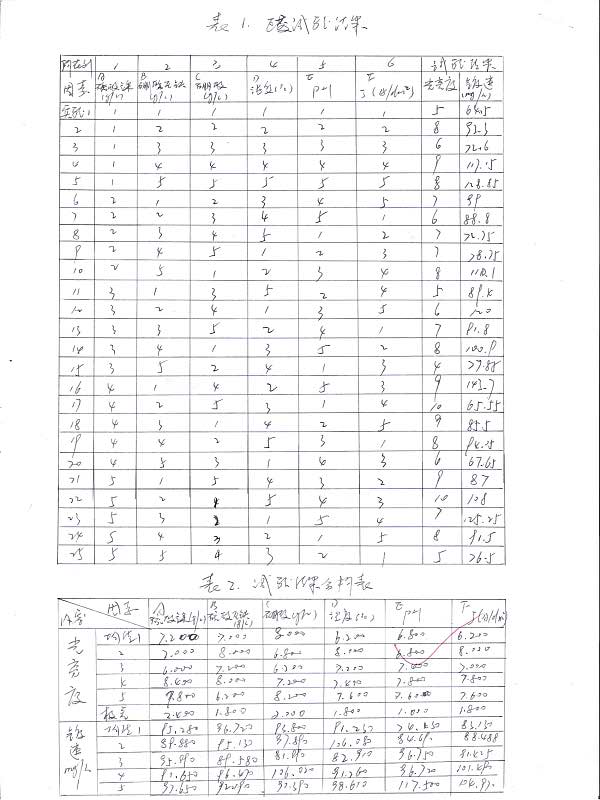 表1. 试验结果
所在列 1 2 3 4 5 6 试验结果
因素 A 硫酸镍 (g/L) B (g/L) C 硼酸 (g/L) D 温度(℃) E pH F J(A/dm²) 光亮度 镀速 (mg/L)
实验1 1 1 1 1 1 1 5 64.5
2 1 2 2 2 2 2 8 93.3
3 1 3 3 3 3 3 6 72.6
4 1 4 4 4 4 4 9 117.15
5 1 5 5 5 5 5 8 128.85
6 2 1 2 3 4 5 7 99
7 2 2 3 4 5 1 6 88.8
8 2 3 4 5 1 2 7 72.75
9 2 4 5 1 2 3 7 78.75
10 2 5 1 2 3 4 8 110.1
11 3 1 3 5 2 4 5 89.4
12 3 2 4 1 3 5 6 120
13 3 3 5 2 4 1 7 91.8
14 3 4 1 3 5 2 8 100.9
15 3 5 2 4 1 3 4 77.85
16 4 1 4 2 5 3 9 143.7
17 4 2 5 3 1 4 10 65.55
18 4 3 1 4 2 5 9 85.5
19 4 4 2 5 3 1 8 94.05
20 4 5 3 1 4 3 6 67.65
21 5 1 5 4 3 2 9 87
22 5 2 5 4 3 10 108
23 5 3 1 5 4 7 125.25
24 5 4 2 1 5 8 91.5
25 5 5 4 3 2 1 5 76.5
表2. 试验结果分析表
内容 因素 A (g/L) B (g/L) C 硼酸(g/L) D 温度(℃) E pH F J(A/dm²)
光亮度 均值1 7.200 7.000 8.000 6.200 6.800 6.200
2 7.000 8.000 6.800 8.000 6.800 8.000
3 6.000 7.200 6.200 7.200 7.400 7.000
4 8.400 8.000 7.200 7.400 7.800 7.800
5 7.800 6.200 8.200 7.600 7.600 7.600
极差 2.400 1.800 2.000 1.800 1.000 1.800
镀速 mg/L 均值1 95.280 96.720 91.230 83.130
2 89.880 95.130 97.890 106.080 84.690 88.488
3 95.990 89.580 81.990 82.910 96.750
4 91.650 96.490 106.020 91.260 96.720
5 97.650 98.610 117.500